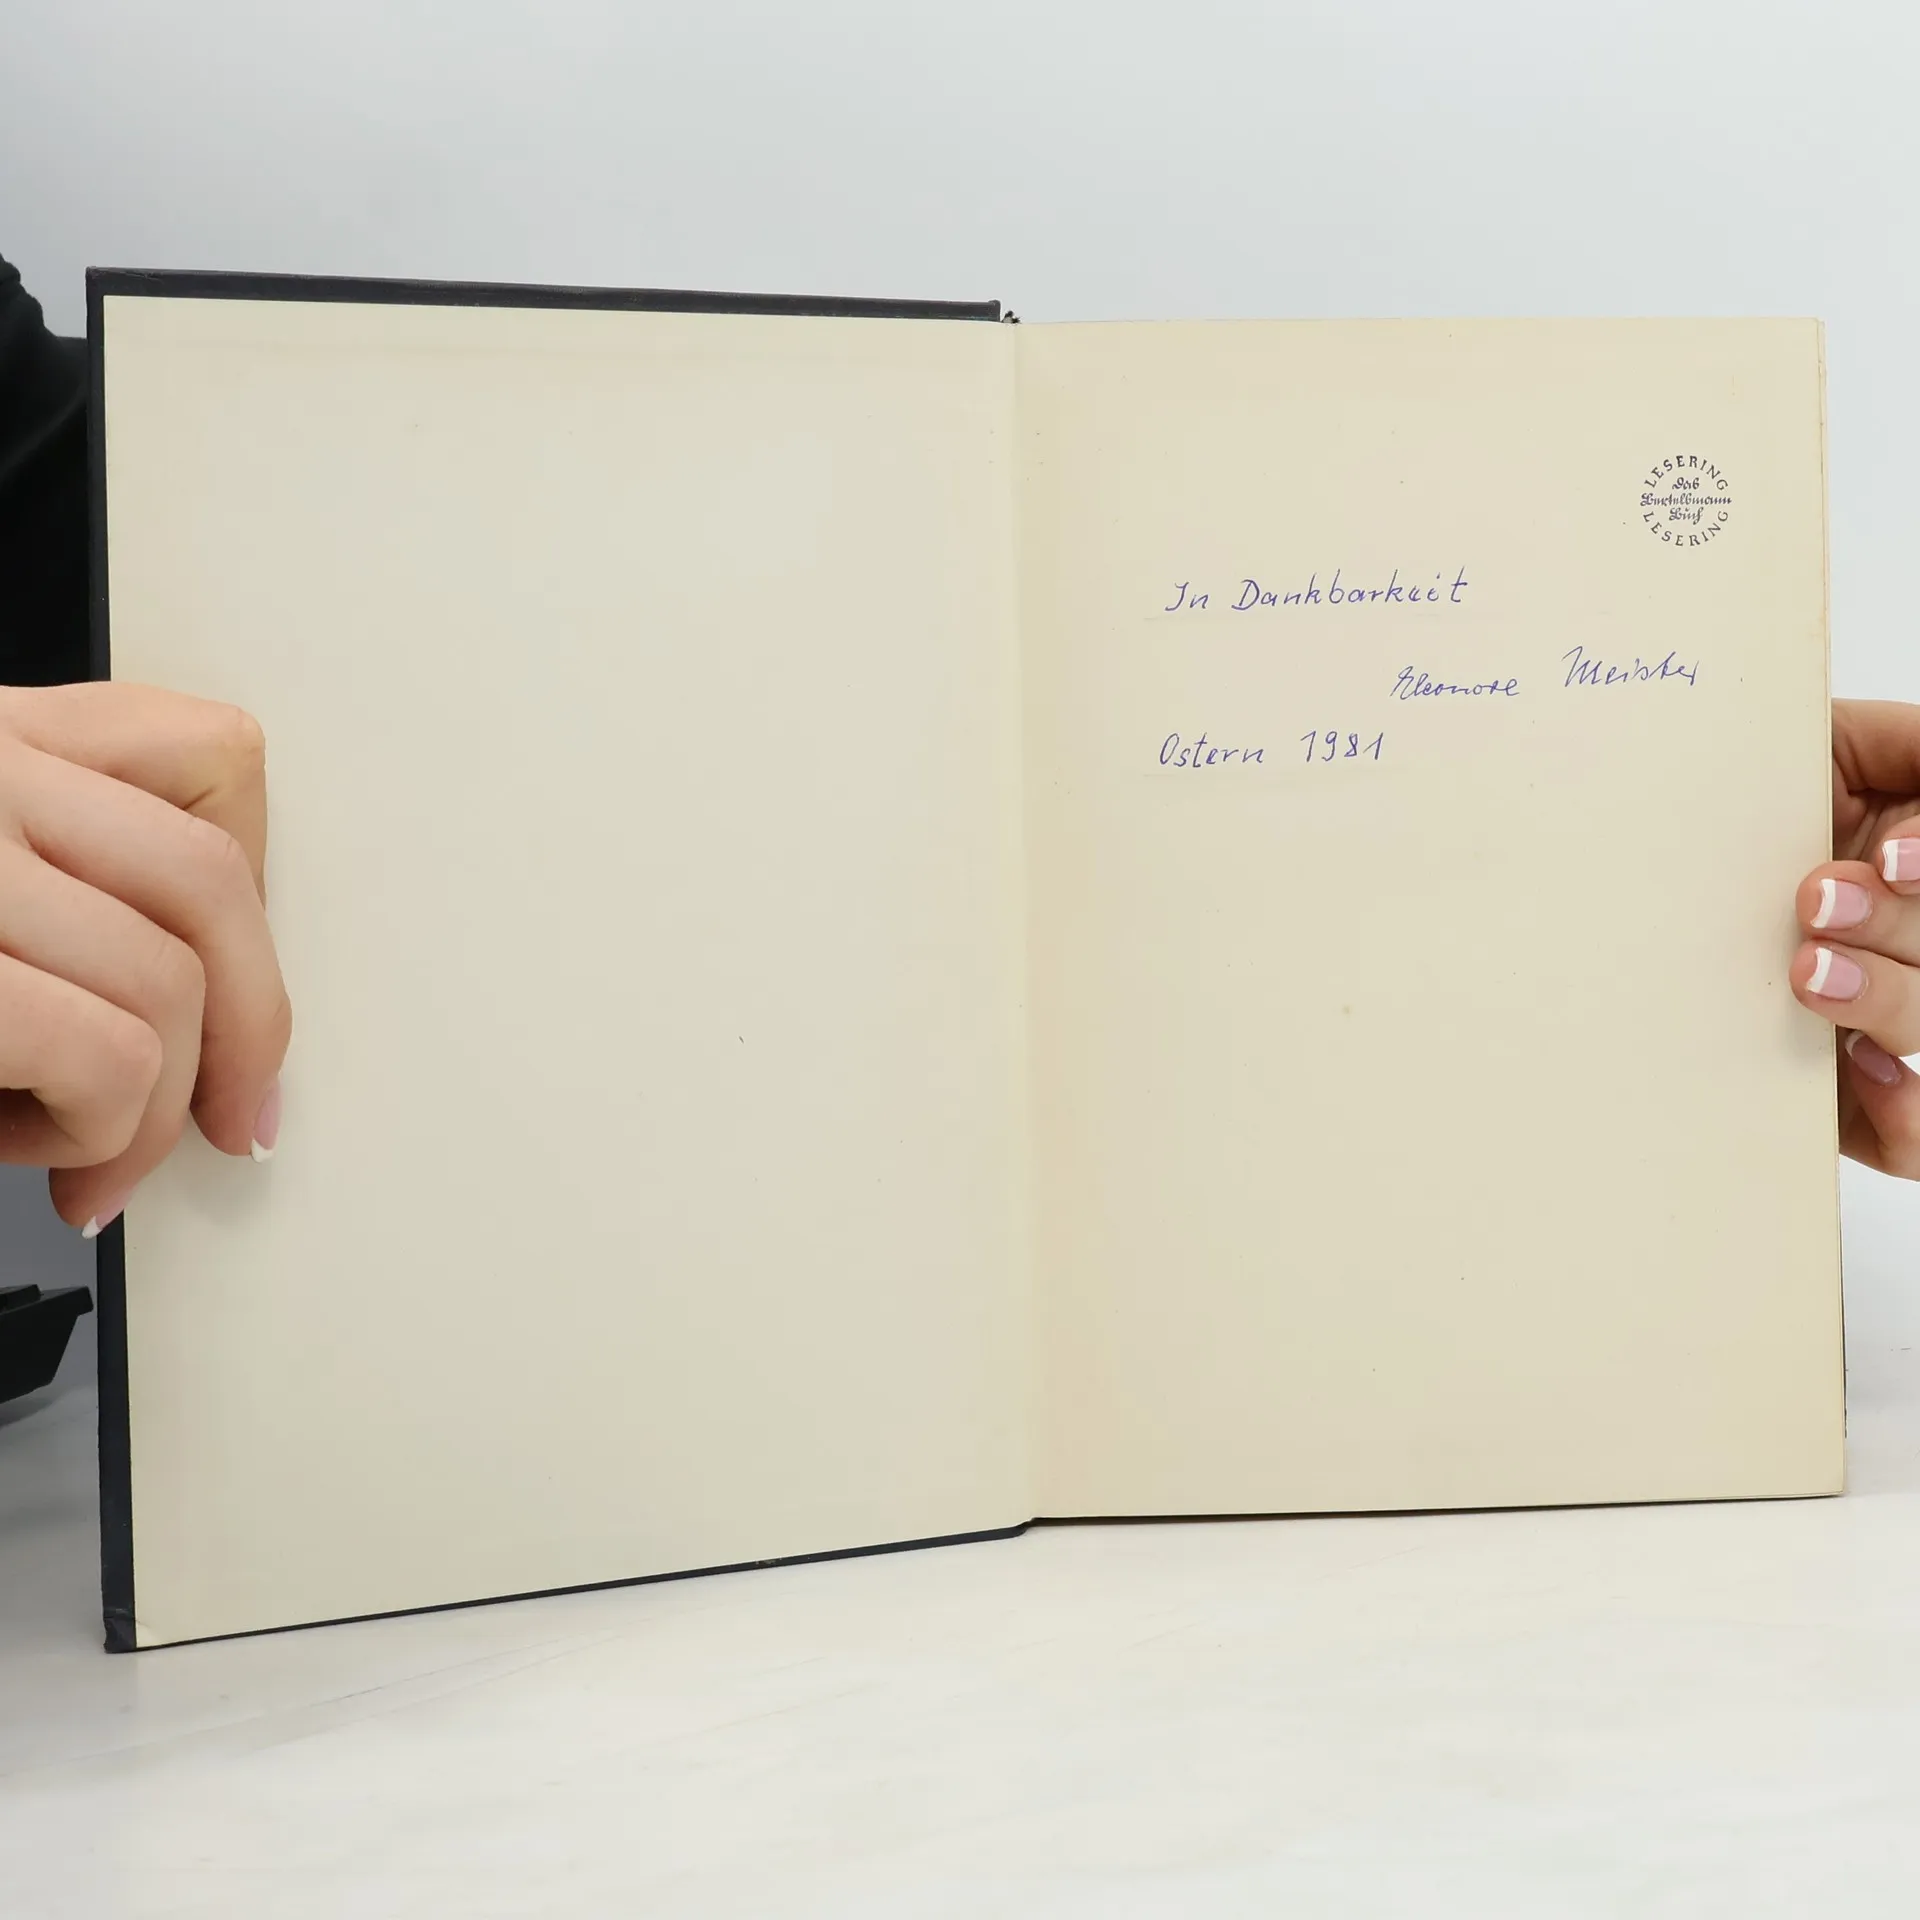 LESERING
Das
Bertelsmann
Buch
LESERING
In Dankbarkeit
Eleonore Meister
Ostern 1981